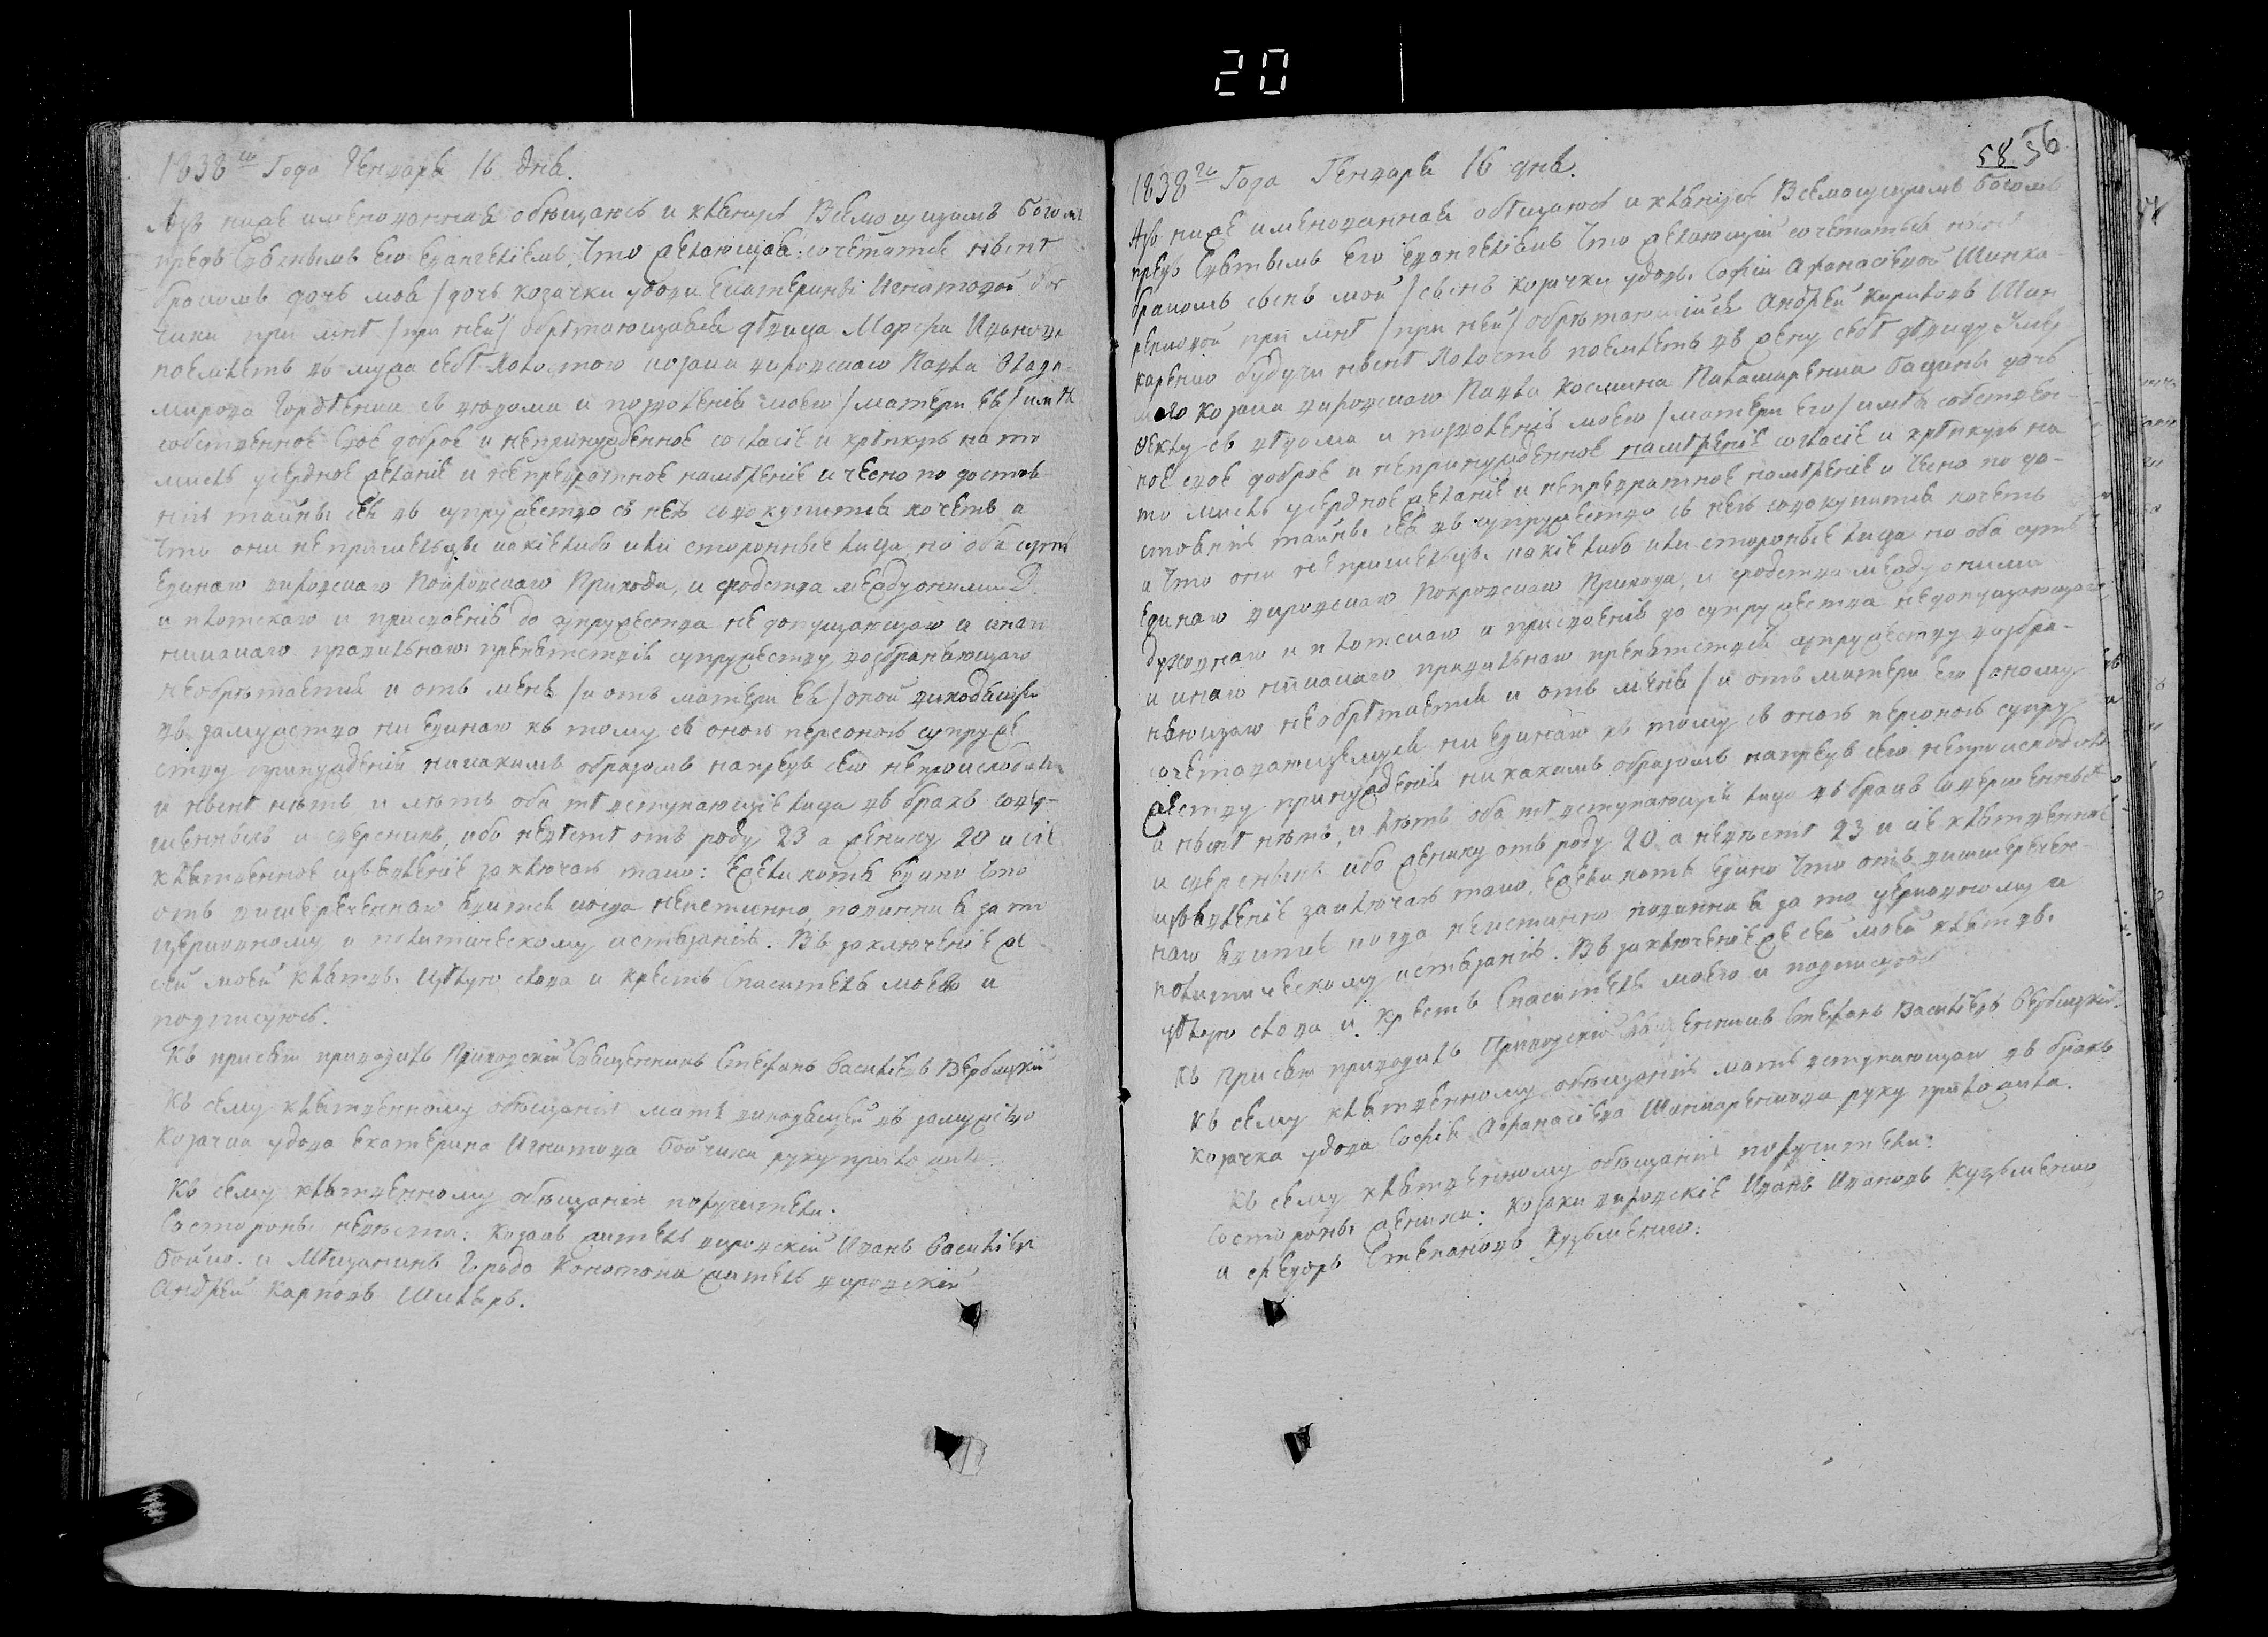 20
1838го Года Генваря 16 дня.
Азъ ниже именованная обѣщаюсь и клянусь Всемогущимъ Богомъ
предъ Святымъ Его Евангелиемъ, Что желающая сочетатся нынѣ
бракомъ дочь моя /дочь козачки удови Екатерины Игнатовой Бой
чики при мнѣ /при ней/ обрѣтающаяся дѣвица Марфа Иванова
поемлетъ въ мужа себѣ Холостого козака вировского Павла
мирова Гордѣенка съ вѣдома и позволенія моего /матери ея/ имѣя
собственное свое доброе и непринужденное согласіе и крѣпкую на то
мысль усердное желаніе и непревратное намѣреніе и чесно по достоя
нію тайны сея въ супружество съ нею совокупится хочетъ а
Что они непришельцы какіе либо или сторонные лица но оба суть
Единаго вировскаго Покровскаго Прихода, и сродства между оними Д.
и плотскаго и присвоенія до супружества не допущающаго и инаго
никакаго правильнаго препятствія супружеству возбраняющаго
необрѣтается и отъ меня /и отъ матери ея/ оной виходящей
въ замужство ни единаго къ тому съ оною персоною супруже
ству принужденія никакимъ образомъ напредь сего непроисходило
и нынѣ нѣтъ и лѣтъ оби тѣ вступающіе лица въ бракъ совер-
шенныхъ и сверсныхъ, ибо невѣстѣ отъ роду 23 а жениху 20 и сіе
клятвенное изъявленіе заключаю тако: Ежели хотя едино Что
отъ вишереченнаго явится когда неистинно, повинна я за то
церковному и политическому истязанію. Въ заключеніе же
сей моей клятвы цѣлую слова и крестъ Спасителя моего и
подписуюсь.
Къ присягѣ приводилъ Приходскій Священникъ Стефанъ Василіевъ Вербицкій
Къ сему клятвенному обѣщанію мать виходящей въ замужство
Козачка удова Екатерина Игнатова Бойчика руку приложила.
Къ сему клятвенному обѣщанію поручители:
Состороны невѣсти: Козакъ житель вировскій Иванъ Василіевъ
Бойко. и Мѣщанинъ Города Конотопа житель вировскій
Андрей Карповъ Шкляръ.
58 56
1838го Года Генваря 16 дня.
Азъ ниже именованная обѣщаюсь и клянусь Всемогущимъ Богомъ
предъ Святымъ Его Евангеліемъ Что желающій сочетатся нынѣ
бракомъ сынъ мой /сынъ козачки удовы Софіи Афанасіевой Шинка
ренковой при мнѣ /при ней/ обрѣтающійся Андрей Кириловъ Шин
каренко будучи нынѣ Холостъ поемлетъ въ жену себѣ дѣвицу Умер
шаго Козака вировскаго Павла Космина Паламаренка дочь
Феклу съ вѣдома и позволенія моего /матери его/ имѣя собствен-
ное свое доброе и непринужденное намѣреніе согласіе и крѣпкую на
то мысль усердное желаніе и непревратное намѣреніе и чесно по до-
стоянію тайны сея въ супружество съ нею совокупится хочетъ
а Что они непришельцы какіе либо или сторонные лица но оба суть
Единаго вировскаго Покровскаго Прихода, и сродства между оними
духовнаго и плотскаго и присвоенія до супружества недопущающаго
и инаго никакаго правильнаго препятствія супружеству возбра-
няющаго необрѣтается и отъ меня /и отъ матери его/ оному
сочетовающемуся ни единаго къ тому съ оною персоною супру
жеству принужденія никакимъ образомъ напредъ сего непроисходило
и нынѣ нѣтъ, и лѣтъ оба тѣ вступающіе лица въ бракъ совершенныхъ
и сверсныхъ ибо жениху отъ роду 20 а невѣстѣ 23 и сіе клятвенное
изъявленіе заключаю тако, Ежели хотя едино Что отъ вишеречен-
наго явится когда неистинно повинна я за то церковному и
политическому истязанію. Въ заключеніе же сей моей клятвы
цѣлую слова и крестъ Спасителя моего и подписуюсь
Къ Присягѣ приводилъ Приходскій Священникъ Стефанъ Василіевъ Вербицкій.
Къ сему клятвенному обѣщанію мать вступающаго въ бракъ
козачка удова Софія Афанасіева Шинкаренкова руку приложила.
Къ сему клятвенному обѣщанію поручители:
Состороны жениха: Козаки вировскіе Иванъ Ивановъ Кузьменко
и Федоръ Степановъ Кузьменко.